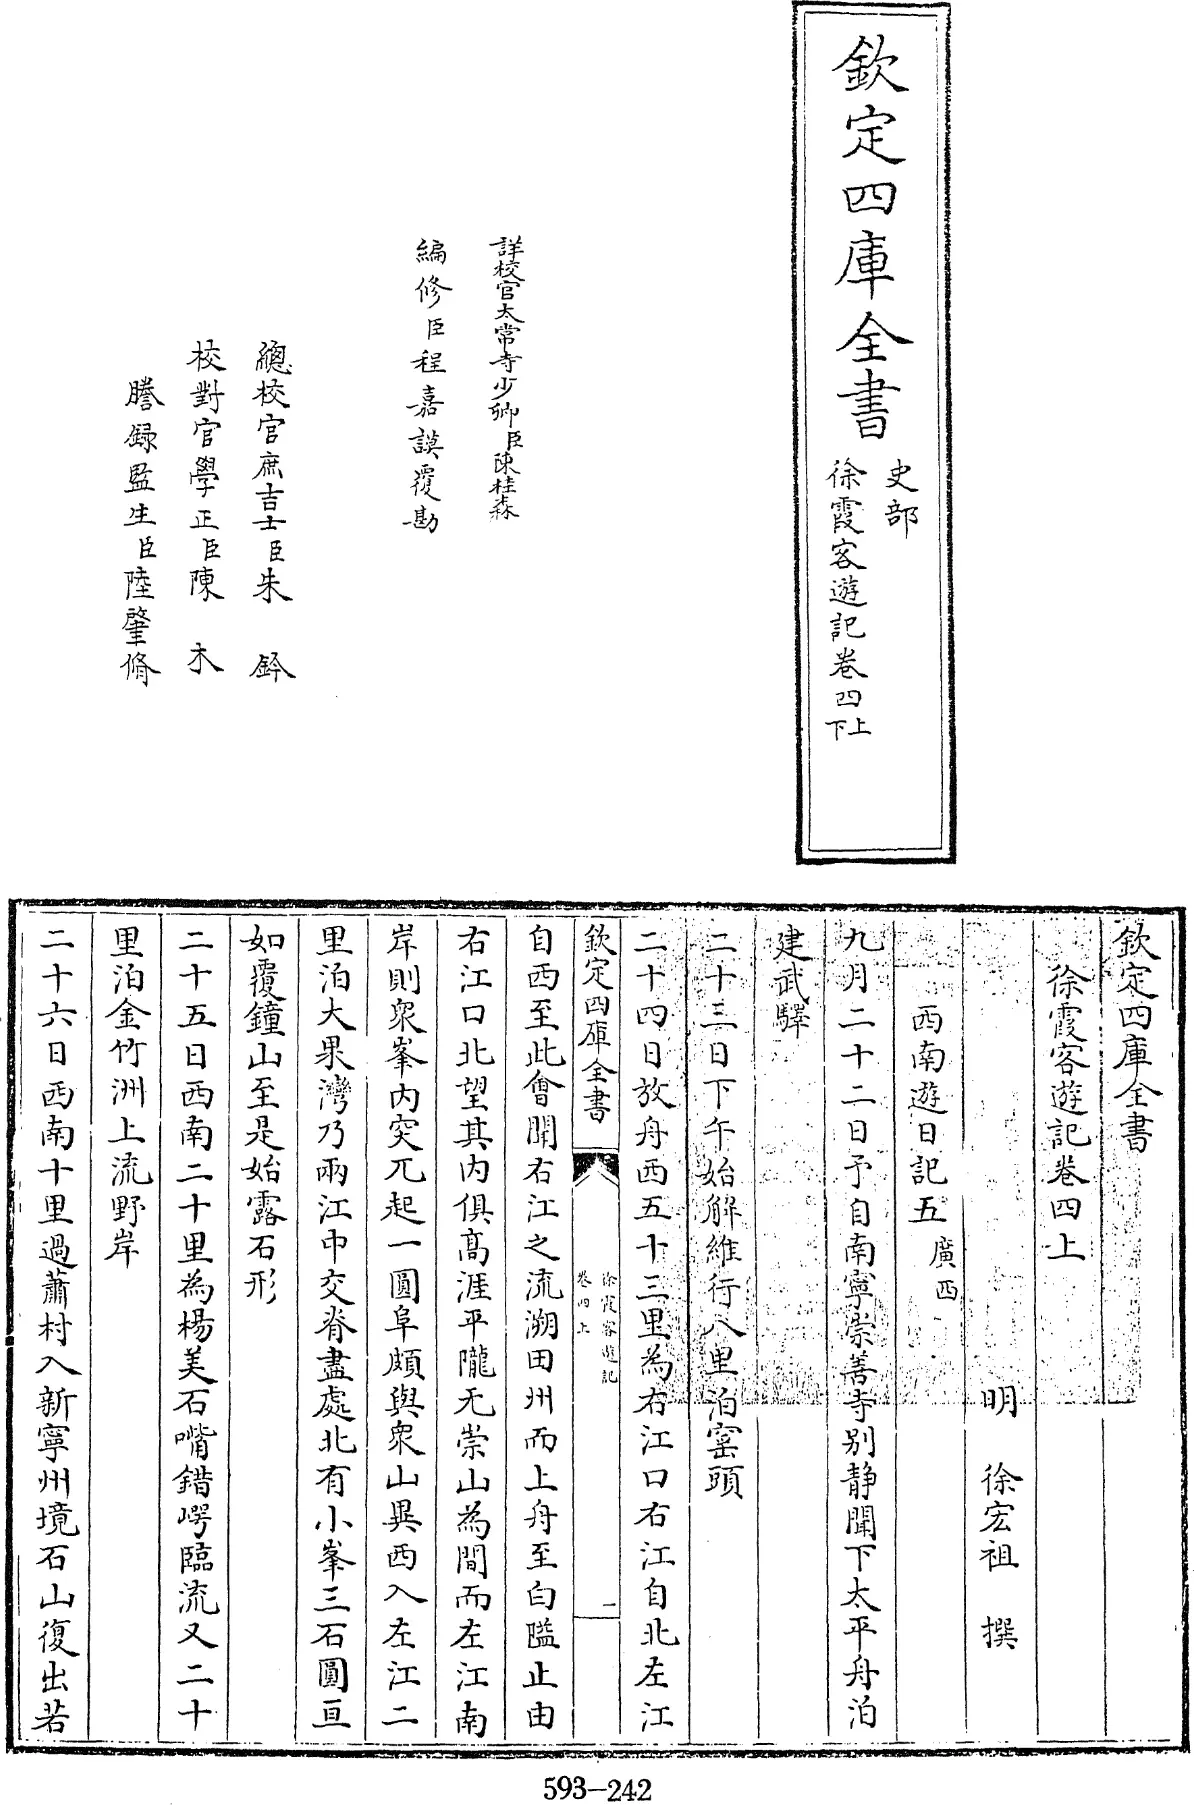 欽定四庫全書
史部
徐霞客遊記卷四上下
詳校官太常寺少卿臣陳桂森
編修臣程嘉謨覆勘
總校官庶吉士臣朱鈐
校對官學正臣陳木
謄録監生臣陸肇脩
欽定四庫全書
徐霞客遊記卷四上
明 徐宏祖 撰
西南遊日記五廣西
九月二十二日予自南寧崇善寺别静聞下太平舟泊
建武驛
二十三日下午始解維行八里泊窑頭
二十四日放舟西五十三里為右江口右江自北左江
欽定四庫全書
徐霞客遊記
卷四上
一
自西至此會聞右江之流溯田州而上舟至白隘止由
右江口北望其内俱髙涯平隴无崇山為間而左江南
岸則衆峯内突兀起一圓阜頗與衆山異西入左江二
里泊大果灣乃兩江中交脊盡處北有小峯三石圓亘
如覆鐘山至是始露石形
二十五日西南二十里為楊美石嘴錯愕臨流又二十
里泊金竹洲上流野岸
二十六日西南十里過蕭村入新寧州境石山復出若
593-242